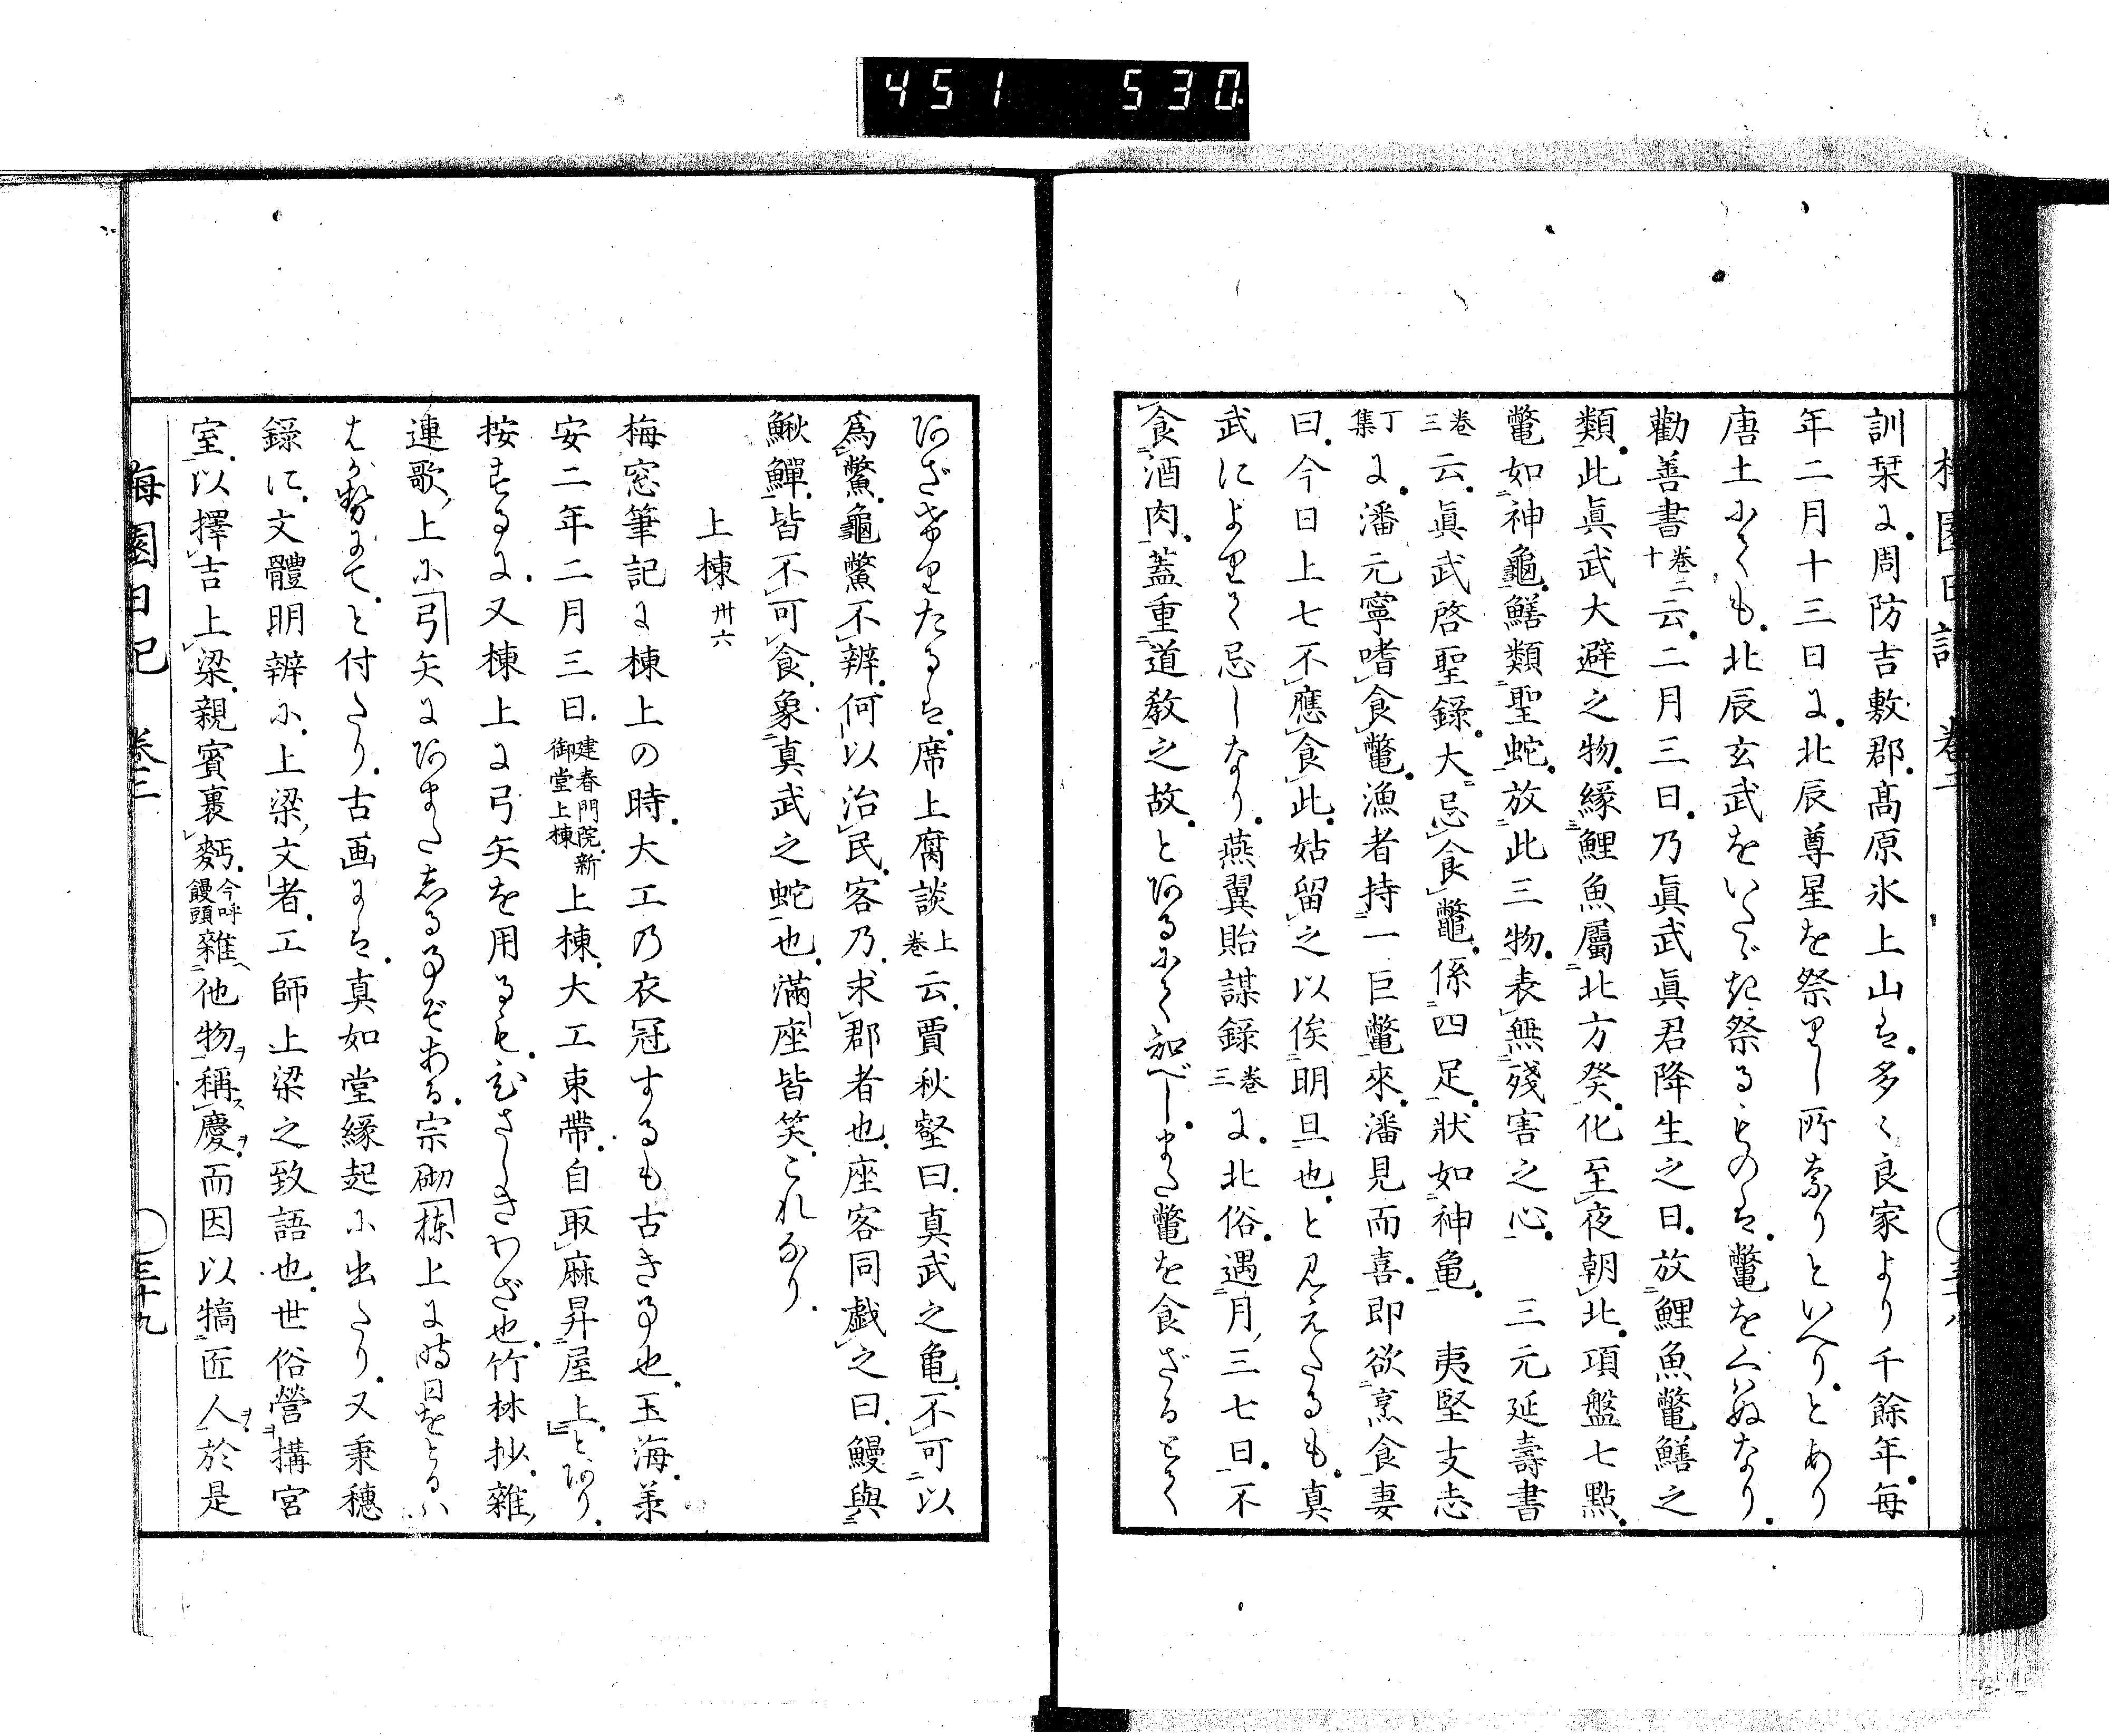 451 530
訓栞に。周防吉敷郡。髙原氷上山は。多々良家より千餘年。毎
年二月十三日に。北辰尊星を祭りし所なりといへり。とあり
唐土にても。北辰玄武をいたゞき祭るものは。鼈をくはぬなり。
勸善書卷二十云。二月三日。乃眞武眞君降生之日。放鯉魚鼈鱔之
類。此眞武大避之物。緣鯉魚屬北方癸。化至夜朝北。項盤七點。
鼈如神龜。鱔類聖蛇。放此三物。表無殘害之心。 三元延壽書
卷三云。眞武啓聖錄。大忌食鼈。係四足。狀如神亀。 夷堅支志
丁集に。潘元寧嗜食鼈。漁者持一巨鼈來。潘見而喜。即欲烹食。妻
曰。今日上七不應食此。姑留之以俟明旦也。と見えたるも。真
武によりて忌しなり。燕翼貽謀録卷三に。北俗。遇月三七日。不
食酒肉。蓋重道教之故。とあるにて知べし。また鼈を食ざるとて
あざけりたるは。席上腐談上卷云。賈秋壑曰。真武之亀。不可以
爲鱉。龜鱉不辨。何以治民。客乃求郡者也。座客同戯之曰。鰻與
鰍鱓。皆不可食。象真武之蛇也。滿座皆笑。これなり。
上棟 卅六
梅窓筆記に棟上の時。大工乃衣冠するも古き事也。玉海。兼
安二年二月三日。建春門院。新御堂上棟上棟。大工束帶。自取麻昇屋上。とあり。
按ずるに。又棟上に弓矢を用るも。むさしきわざ也。竹林抄。雜
連歌上に「弓矢にあまたしる事ぞある。宗砌「棟上に時日をとるハ
はか勢にて。と付たり。古画には。真如堂緣起に出たり。又秉穗
録に。文體明辨に。上梁文者。工師上梁之致語也。世俗營搆宮
室。以擇吉上梁。親賓裹麪。今呼饅頭雜他物稱慶。而因以犒匠人。於是
梅園日記 卷三 ○三十九